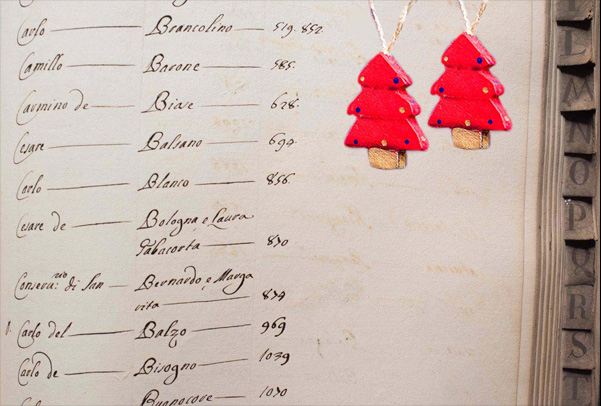 Carlo Brancolino 519. 852
Camillo Barone 585.
Carmino de Biase 628.
Cesare Balsano 694.
Carlo Blanco 856.
Cesare de Bologna e Laura
Tabacorta 870
Conserva.rio di San Bernardo, e Marga
rita 874
Carlo del Balzo 969
Carlo de Bisogno 1039
1070
L
M
N
O
P
Q
R
S
T